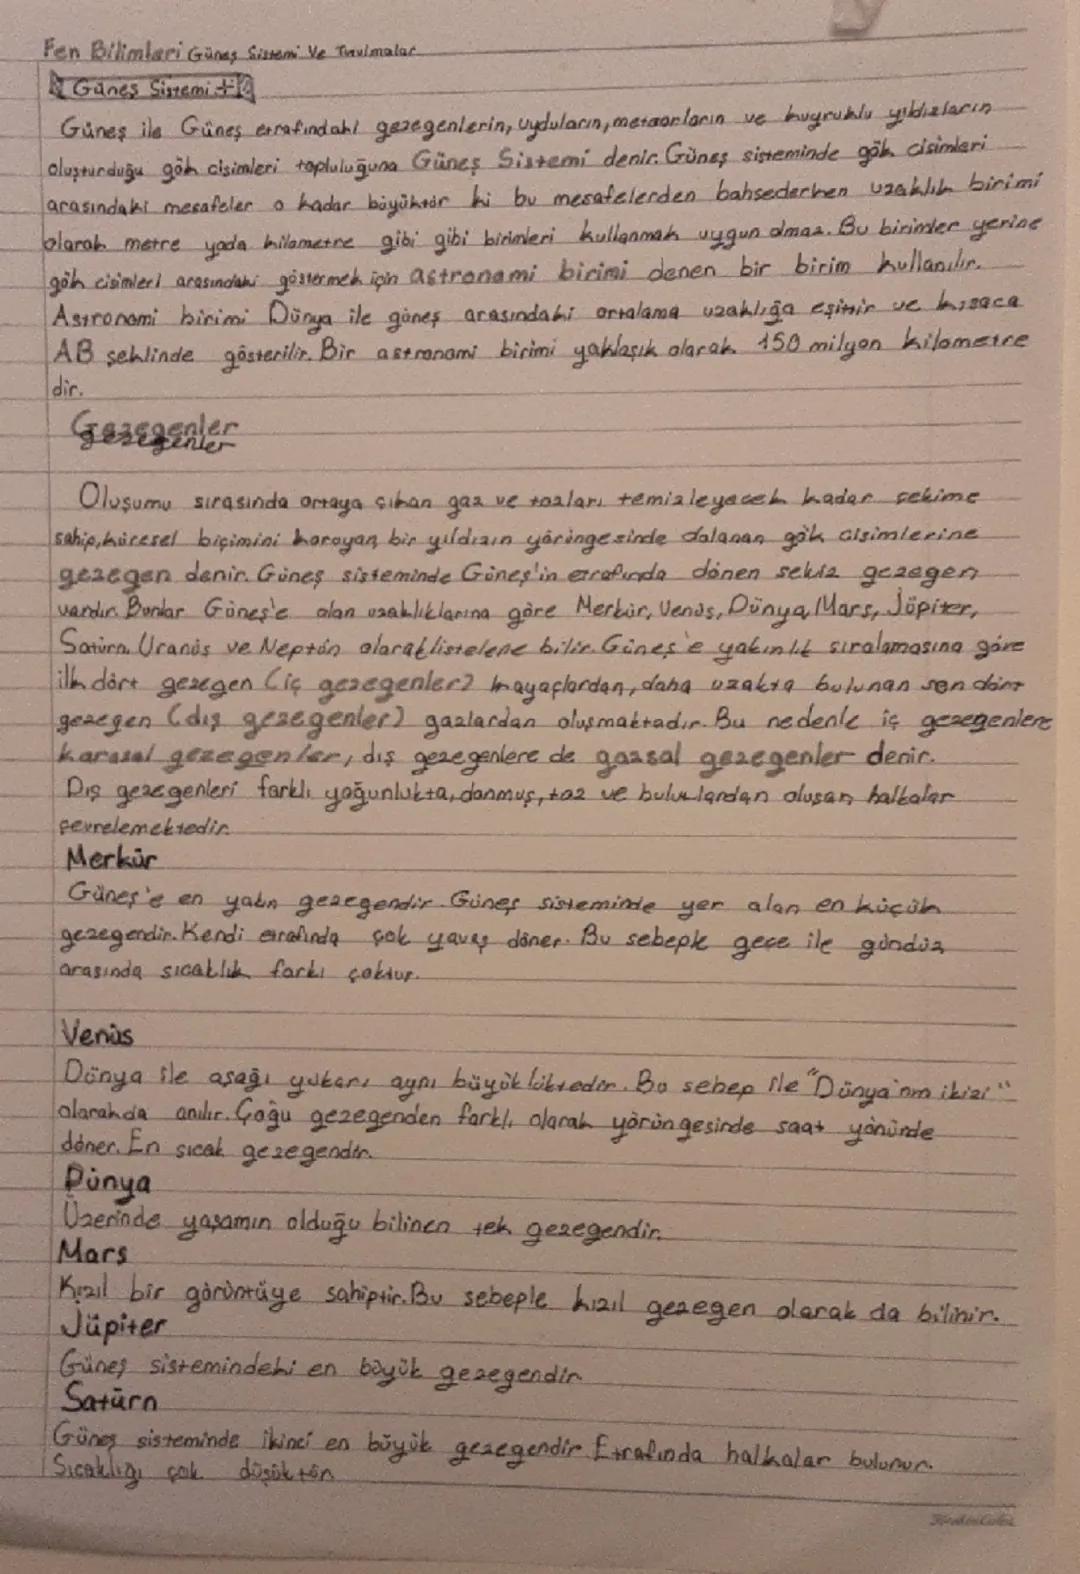 Fen Bilimleri Güneş Sistemi Ve Tutulmalar
Güneş Sistemi
Güneş ile Güneş etrafındaki gezegenlerin, uyduların, meteorların ve kuyruklu yıldızların
oluşturduğu gök cisimleri topluluğuna Güneş Sistemi denir. Güneş sisteminde gök cisimleri
arasındaki mesafeler o kadar büyüktür ki bu mesafelerden bahsederken uzaklık birimi
olarak metre yada kilometre gibi gibi birimleri kullanmak uygun olmaz. Bu birimler yerine
gök cisimleri arasındaki göstermek için astronomi birimi denen bir birim kullanılır.
Astronomi birimi Dünya ile güneş arasındaki ortalama uzaklığa eşittir ve kısaca
AB şeklinde gösterilir. Bir astronomi birimi yaklaşık olarak 150 milyon kilometre
dir.
Gezegenler
gezegenler
Oluşumu sırasında ortaya çıkan gaz ve tozları temizleyecek kadar çekime
sahip, küresel biçimini koruyan bir yıldızın yörüngesinde dolanan gök cisimlerine
gezegen denir. Güneş sisteminde Güneş'in etrafında dönen sekiz gezegen
vardır. Bunlar Güneş'e olan uzaklıklarına göre Merkür, Venüs, Dünya, Mars, Jüpiter,
Satürn, Uranüs ve Neptün olarak listelene bilir. Güneş'e yakınlık sıralamasına göre
ilk dört gezegen (iç gezegenler) kayaçlardan, daha uzakta bulunan son dört
gezegen (dış gezegenler) gazlardan oluşmaktadır. Bu nedenle iç gezegenlere
karasal gezegenler, dış gezegenlere de gazsal gezegenler denir.
Dış gezegenleri farklı yoğunlukta, donmuş, toz ve bulutlardan oluşan halkalar
çevrelemektedir.
Merkür
Güneş'e en yakın gezegendir. Güneş sisteminde yer alan en küçük
gezegendir. Kendi etrafında çok yavaş döner. Bu sebeple gece ile gündüz
arasında sıcaklık farkı çoktur.
Venüs
Dünya ile aşağı yukarı aynı büyüklüktedir. Bu sebep ile "Dünya'nın ikizi"
olarakda anılır. Çoğu gezegenden farklı olarak yörüngesinde saat yönünde
döner. En sıcak gezegendir.
Dünya
Üzerinde yaşamın olduğu bilinen tek gezegendir.
Mars
Kızıl bir görüntüye sahiptir. Bu sebeple kızıl gezegen olarak da bilinir.
Jüpiter
Güneş sistemindeki en büyük gezegendir
Satürn
Güneş sisteminde ikinci en büyük gezegendir. Etrafında halkalar bulunur.
Sıcaklığı çok düşüktür